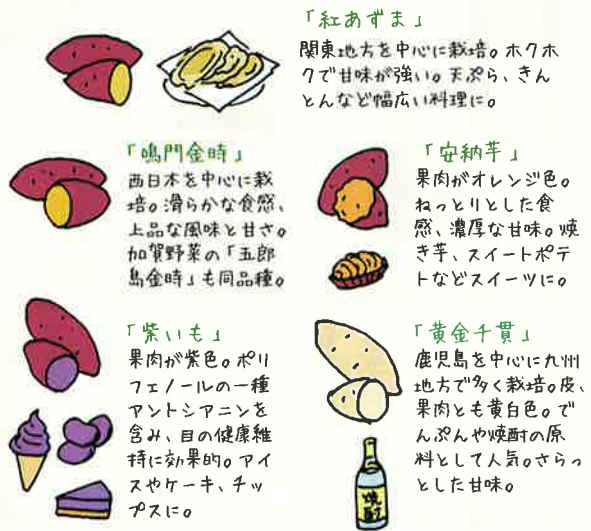 「紅あずま」
関東地方を中心に栽培。ホクホ
クで甘味が強い。天ぷら、きん
とんなど幅広い料理に。
「鳴門金時」
西日本を中心に栽
培。滑らかな食感、
上品な風味と甘さ。
加賀野菜の「五郎
島金時」も同品種。
「安納芋」
果肉がオレンジ色。
ねっとりとした食
感、濃厚な甘味。焼
き芋、スイートポテ
トなどスイーツに。
「紫いも」
果肉が紫色。ポリ
フェノールの一種
アントシアニンを
含み、目の健康維
持に効果的。アイ
スやケーキ、チッ
プスに。
「黄金千貫」
鹿児島を中心に九州
地方で多く栽培。皮、
果肉とも黄白色。で
んぷんや焼酎の原
料として人気。さらっ
とした甘味。
焼酎